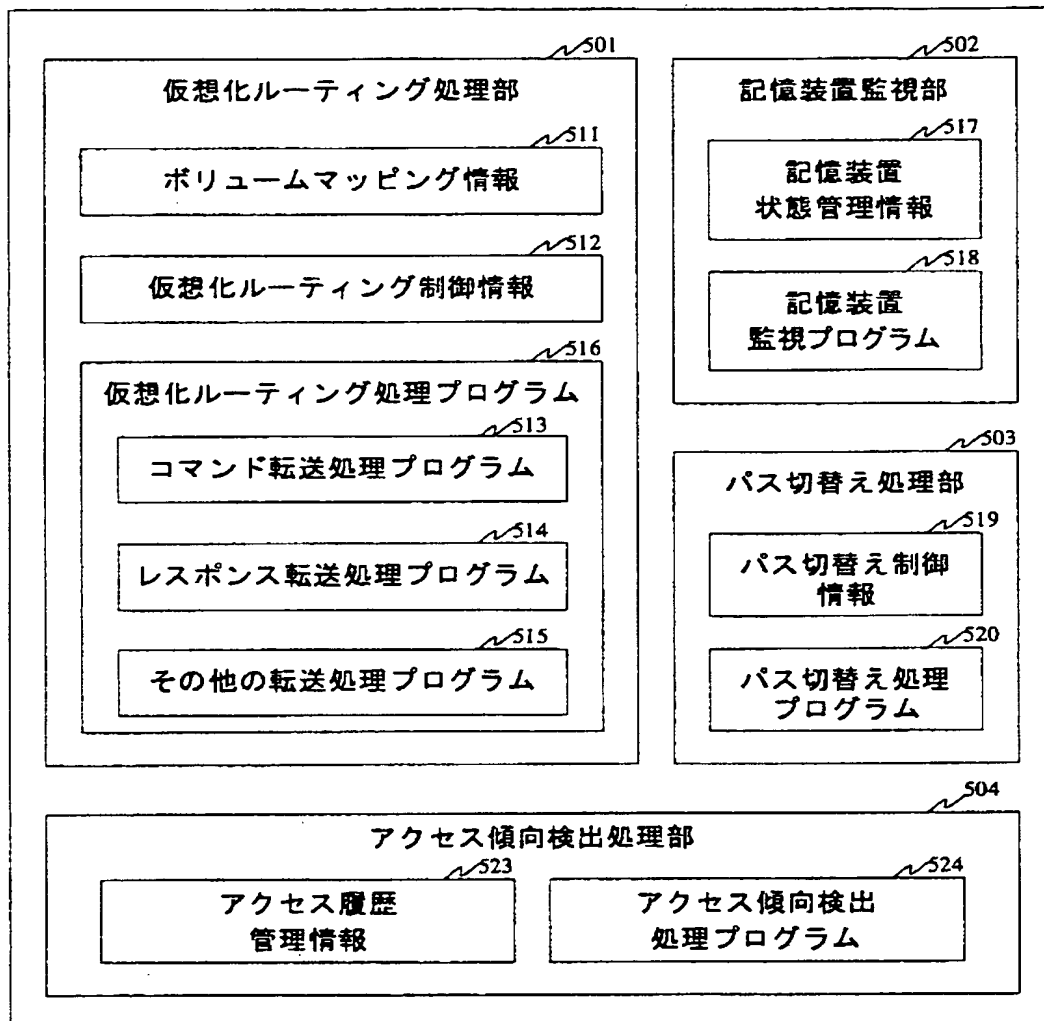 501
仮想化ルーティング処理部
511
ボリュームマッピング情報
512
仮想化ルーティング制御情報
516
仮想化ルーティング処理プログラム
513
コマンド転送処理プログラム
514
レスポンス転送処理プログラム
515
その他の転送処理プログラム
502
記憶装置監視部
517
記憶装置
状態管理情報
518
記憶装置
監視プログラム
503
パス切替え処理部
519
パス切替え制御
情報
520
パス切替え処理
プログラム
504
アクセス傾向検出処理部
523
アクセス履歴
管理情報
524
アクセス傾向検出
処理プログラム